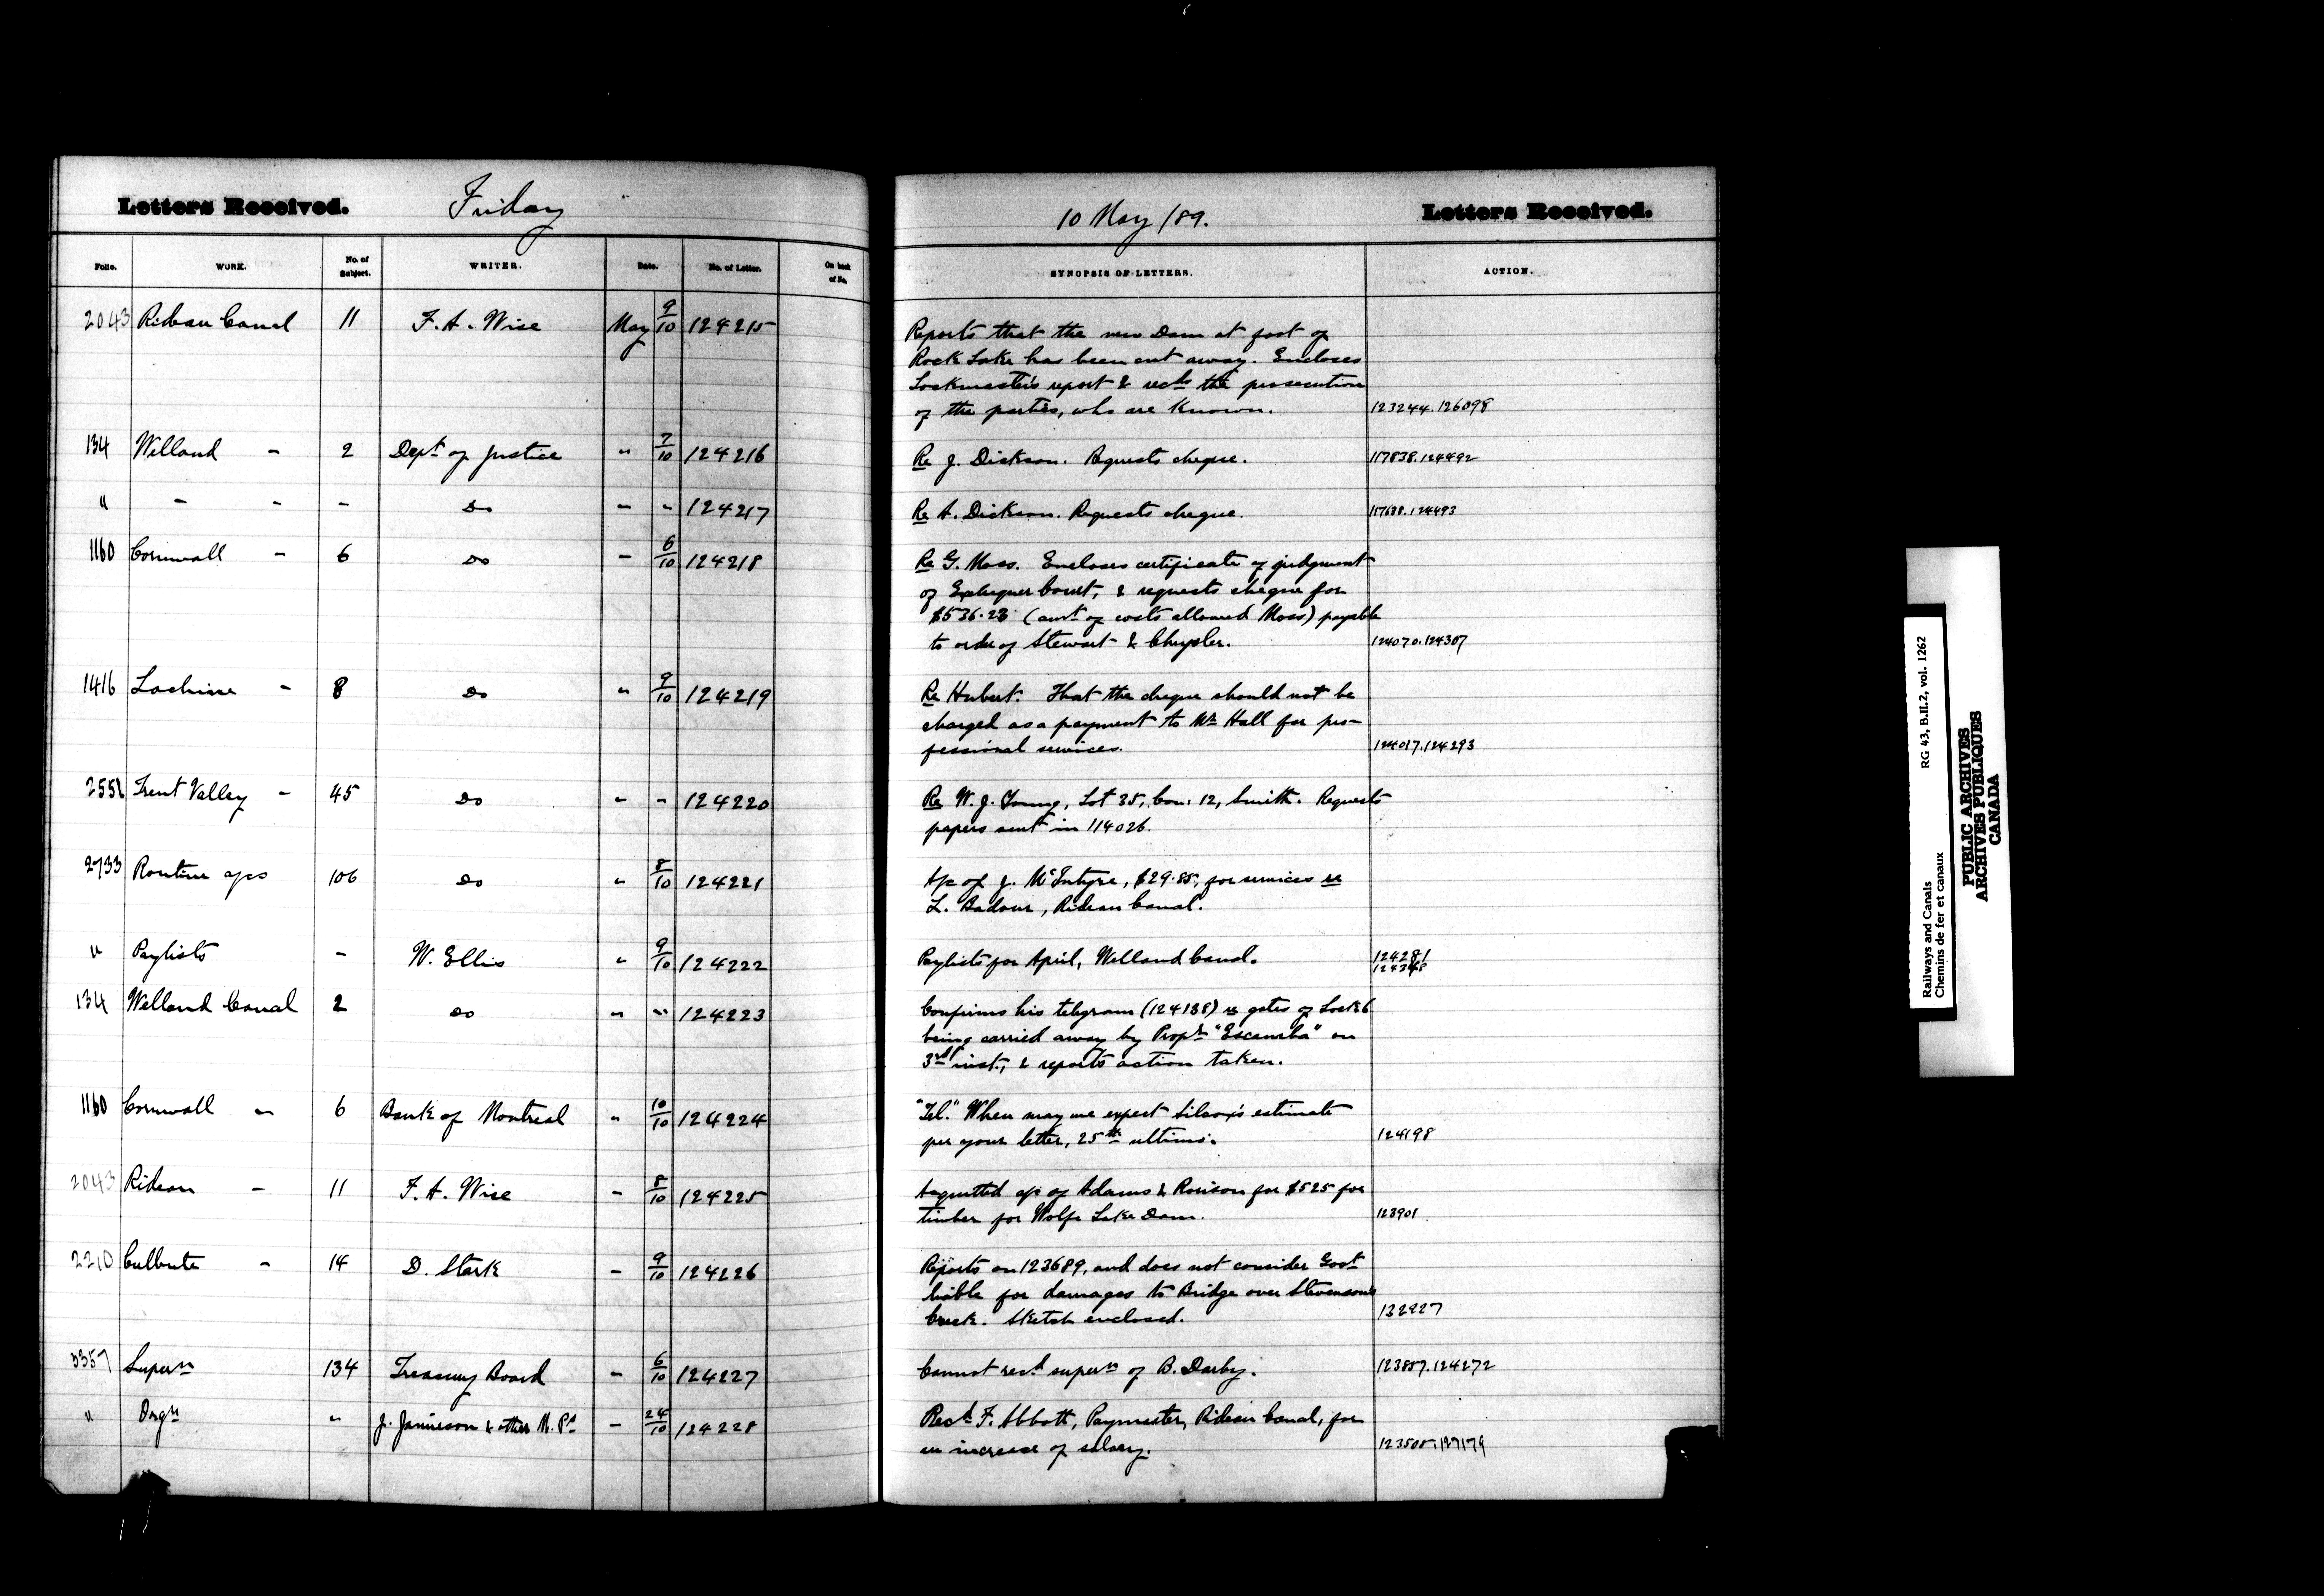 Letters Received.
Friday
10 May /89.
Letters Received.
Folio. WORK. No. of Subject. WRITER. Date. No. of Letter. On back of No. SYNOPSIS OF LETTERS. ACTION.
2043 Rideau Canal 11 F. A. Wise May 9/10 124215
Reports that the new Dam at foot of
Rock Lake has been cut away. Encloses
Lockmaster's report & recds the prosecution
of the parties, who are known. 123244.126098
134 Welland - 2 Dept of Justice " 7/10 124216 Re J. Dickson. Requests cheque. 117838.124492
" - - - Do - - 124217 Re A. Dickson. Requests cheque. 117638.124493
1160 Cornwall - 6 Do - 6/10 124218 Re G. Moss. Encloses certificate of judgment
of Exchequer Court, & requests cheque for
$536.23 (amt of costs allowed Moss) payable
to order of Stewart & Chrysler. 124070.124307
1416 Lachine - 8 Do " 9/10 124219 Re Hubert. That the cheque should not be
charged as a payment to Mr Hall for pro-
fessional services. 124017.124293
2551 Trent Valley - 45 Do " - 124220 Re W. J. Young, Lot 35, Con. 12, Smith. Requests
papers sent in 114026.
2733 Routine a/cs 106 Do " 8/10 124221 A/c of J. McIntyre, $29.85, for services re
L. Badour, Rideau Canal.
" Paylists - W. Ellis " 9/10 124222 Paylists for April, Welland Canal. 124281
124348
134 Welland Canal 2 Do " " 124223 Confirms his telegram (124138) re gates of Lock 6
being carried away by Propr "Escanaba" on
3rd inst., & reports action taken.
1160 Cornwall " 6 Bank of Montreal " 10/10 124224 "Tel." When may we expect Silcox's estimate
per your letter, 25th ultimo. 124198
2043 Rideau - 11 F. A. Wise - 8/10 124225 Acquitted a/c of Adams & Ronison for $525 for
timber for Wolfe Lake Dam. 123901
2210 Culbute - 14 D. Stark - 9/10 124226 Reports on 123689, and does not consider Govt
liable for damages to Bridge over Stevensons
Creek. Sketch enclosed. 132927
3357 Supern 134 Treasury Board - 6/10 124227 Cannot recd supern of B. Darby. 123857.124272
" Orgn " J. Jamieson & other M.Ps - 24/10 124228 Recd F. Abbott, Paymaster, Rideau Canal, for
an increase of salary. 123505.127179
Railways and Canals RG 43, B.II.2, vol. 1262
Chemins de fer et canaux
PUBLIC ARCHIVES
ARCHIVES PUBLIQUES
CANADA